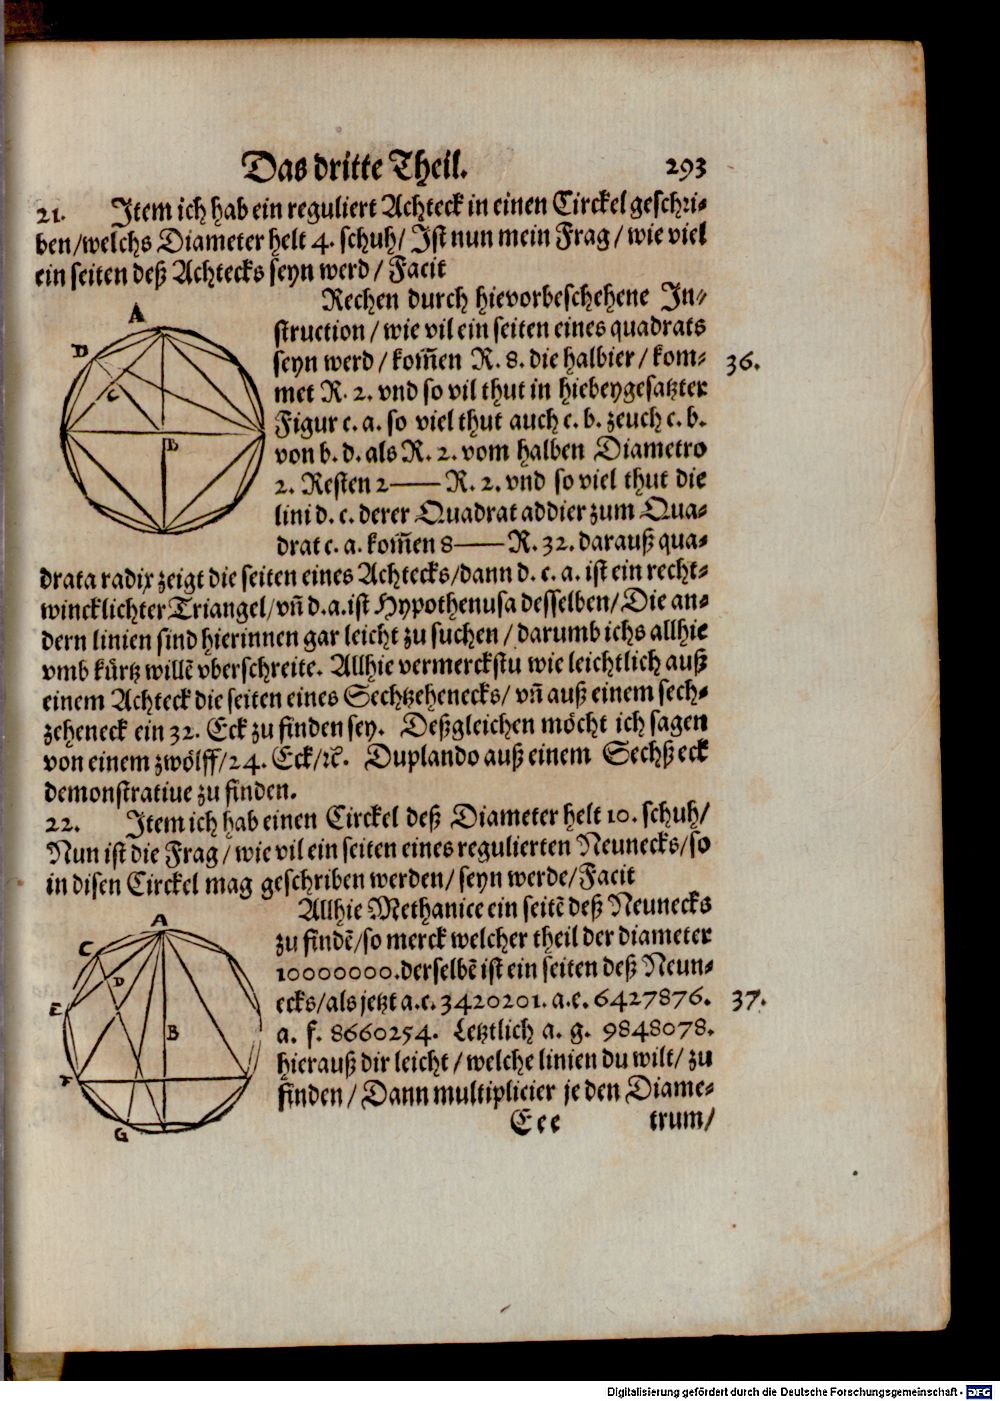 Das dritte Theil. 293
21. Item ich hab ein reguliert Achteck in einen Circkel geschri-
ben/welchs Diameter helt 4. schuh/ Ist nun mein Frag/ wie viel
ein seiten deß Achtecks seyn werd/ Facit
Rechen durch hievorbeschehene In-
struction/ wie vil ein seiten eines quadrats
seyn werd/ kom̃en R. 8. die halbier/ kom-
36.
met R. 2. vnd so vil thut in hiebeygesatzter
Figur c. a. so viel thut auch c. b. zeuch c. b.
von b. d. als R. 2. vom halben Diametro
2. Resten 2—— R. 2. vnd so viel thut die
lini d. c. derer Quadrat addier zum Qua-
drat c. a. kom̃en 8—— R. 32. darauß qua-
A
D
C
B
drata radix zeigt die seiten eines Achtecks/dann d. c. a. ist ein recht-
wincklichter Triangel/vñ d.a.ist Hypothenusa desselben/Die an-
dern linien sind hierinnen gar leicht zu suchen/ darumb ichs allhie
vmb kürtz willẽ vberschreite. Allhie vermerckstu wie leichtlich auß
einem Achteck die seiten eines Sechtzehenecks/ vñ auß einem sech-
zeheneck ein 32. Eck zu finden sey. Deßgleichen möcht ich sagen
von einem zwölff/24. Eck/ꝛc. Duplando auß einem Sechß eck
demonstratiue zu finden.
22. Item ich hab einen Circkel deß Diameter helt 10. schuh/
Nun ist die Frag/ wie vil ein seiten eines regulierten Neunecks/so
in disen Circkel mag geschriben werden/ seyn werde/Facit
Allhie Methanice ein seitẽ deß Neunecks
zu findẽ/so merck welcher theil der diameter
10000000.derselbẽ ist ein seiten deß Neun-
ecks/als jetzt a.c. 3420201. a.e. 6427876.
37.
a. f. 8660254. Letztlich a. g. 9848078.
hierauß dir leicht/ welche linien du wilt/ zu
finden/ Dann multiplicier je den Diame-
A
C
D
E
B
F
G
Eee trum/
Digitalisierung gefördert durch die Deutsche Forschungsgemeinschaft - DFG